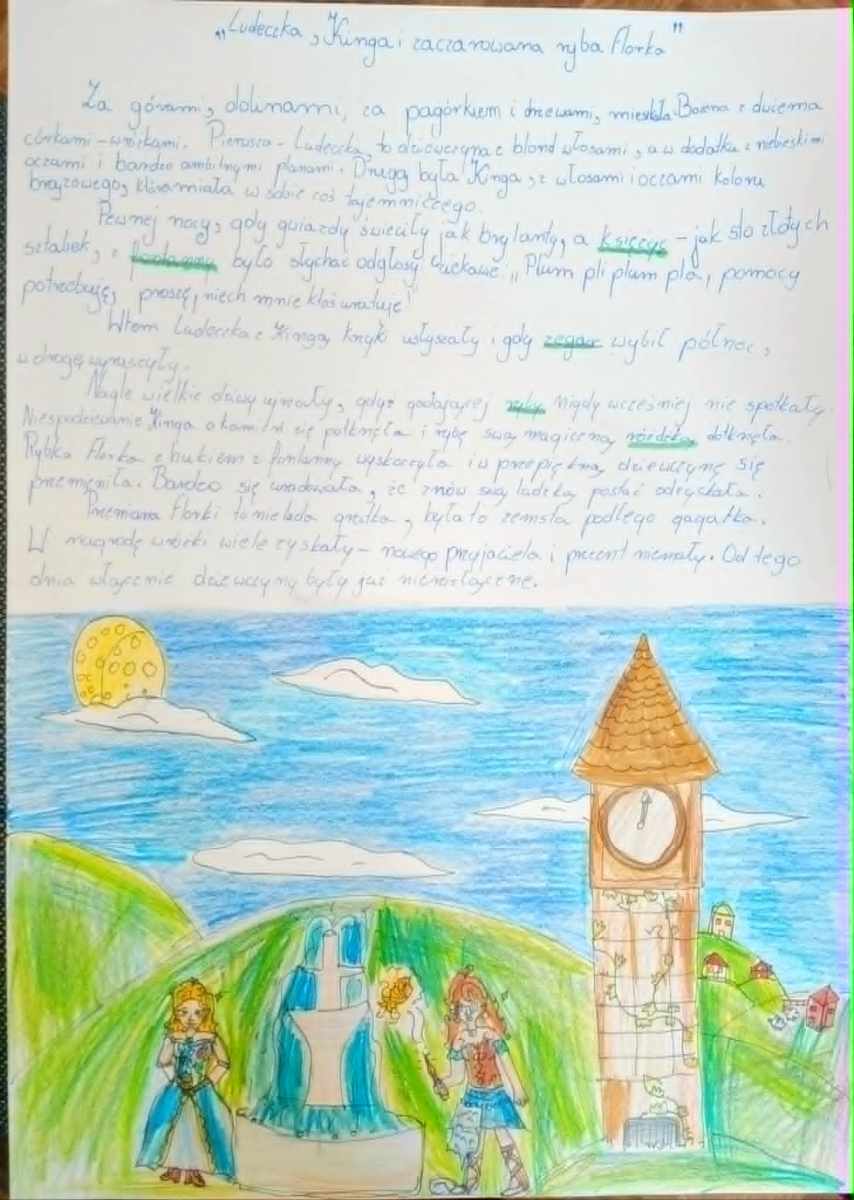 „Ludeczka, Kinga i zaczarowana ryba Florka"
Za górami, dolinami, za pagórkiem i drzewami, mieszkała Bożena z dwiema
córkami-wróżkami. Pierwsza - Ludeczka, to dziewczyna z blond włosami, a w dodatku z niebieskimi
oczami i bardzo ambitnymi planami. Drugą była Kinga, z włosami i oczami koloru
brązowego, która miała w sobie coś tajemniczego.
Pewnej nocy, gdy gwiazdy świeciły jak brylanty, a księżyc - jak sto złotych
sztabek, z fontanny było słychać odgłosy ciekawe „Plum pli plum pla, pomocy
potrzebuję, proszę, niech mnie ktoś uratuje!
Wtem Ludeczka z Kingą krzyki usłyszały i gdy zegar wybił północ,
w drogę wyruszyły.
Nagle wielkie dziwy ujrzały, gdyż gadającej ryby nigdy wcześniej nie spotkały.
Niespodziewanie Kinga o kamień się potknęła i rybę swą magiczną różdżką dotknęła.
Rybka Florka z hukiem z fontanny wyskoczyła i w przepiękną dziewczynę się
przemieniła. Bardzo się uradowała, że znów swą ludzką postać odzyskała.
Przemiana Florki to nie lada gratka, była to zemsta podłego gagatka.
W nagrodę wróżki wiele zyskały - nowego przyjaciela i prezent niemały. Od tego
dnia włącznie dziewczyny były już nierozłączne.